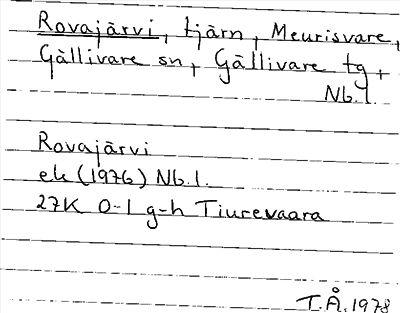 Rovajärvi, tjärn, Meurisvare,
Gällivare sn, Gällivare tg,
Nb. l.
Rovajärvi
ek (1976) Nb. l.
27K 0-1 g-h Tiurevaara
T.Å. 1978